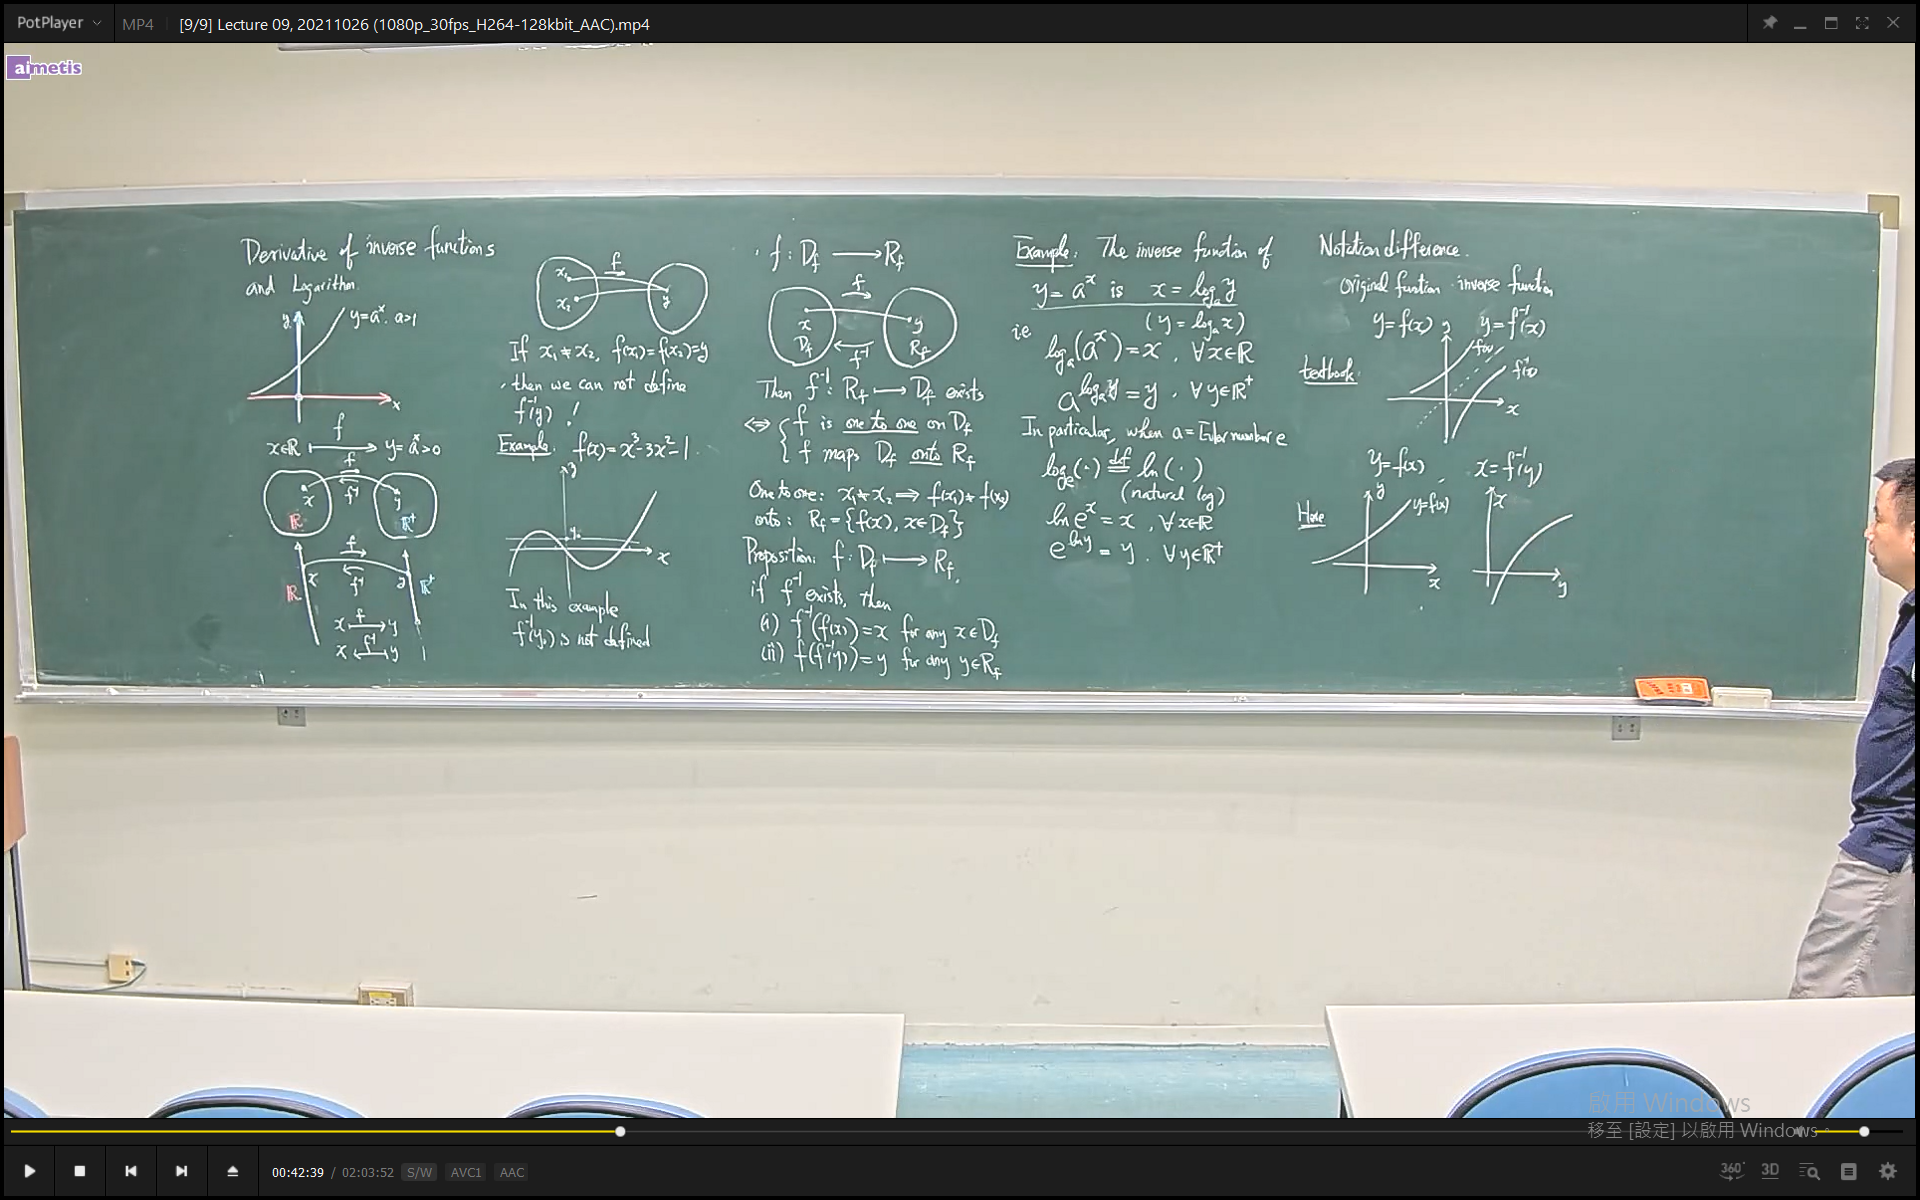 PotPlayer
MP4
[9/9] Lecture 09, 20211026 (1080p_30fps_H264-128kbit_AAC).mp4
aimetis
Derivative of inverse functions
and Logarithm
y
y=a^x. a>1
x
f
x∈ℝ ⟼ y=a^x>0
f
f^-1
x
y
ℝ
ℝ^+
f
x
f^-1
y
ℝ
ℝ^+
x ⟼ y
f
x ⟻ y
f^-1
f
x₁
x₂
y
If x₁≠x₂, f(x₁)=f(x₂)=y
, then we can not define
f^-1(y) !
Example. f(x)=x³-3x²-1
y
y₀
x
In this example
f^-1(y₀) is not defined
f : D_f ⟶ R_f
f
x
y
D_f
f^-1
R_f
Then f^-1: R_f ⟼ D_f exists
⟺ { f is one to one on D_f
f maps D_f onto R_f
One to one: x₁≠x₂ ⟹ f(x₁)≠f(x₂)
onto: R_f={f(x), x∈D_f}
Proposition: f: D_f ⟼ R_f,
if f^-1 exists, then
(i) f^-1(f(x))=x for any x∈D_f
(ii) f(f^-1(y))=y for any y∈R_f
Example: The inverse function of
y=a^x is x=log_a y
(y=log_a x)
i.e
log_a(a^x)=x, ∀x∈ℝ
a^(log_a y)=y, ∀y∈ℝ^+
In particular, when a=Euler number e
log_e(·) def= ln(·)
(natural log)
ln e^x = x, ∀x∈ℝ
e^(ln y) = y. ∀y∈ℝ^+
Notation difference.
Original function inverse function
y=f(x) y=f^-1(x)
y
f(x)
textbook
f^-1(x)
x
y=f(x) x=f^-1(y)
y
y=f(x)
x
Here
x
y
啟用 Windows
移至 [設定] 以啟用 Windows。
00:42:39 / 02:03:52 S/W AVC1 AAC
360°
3D